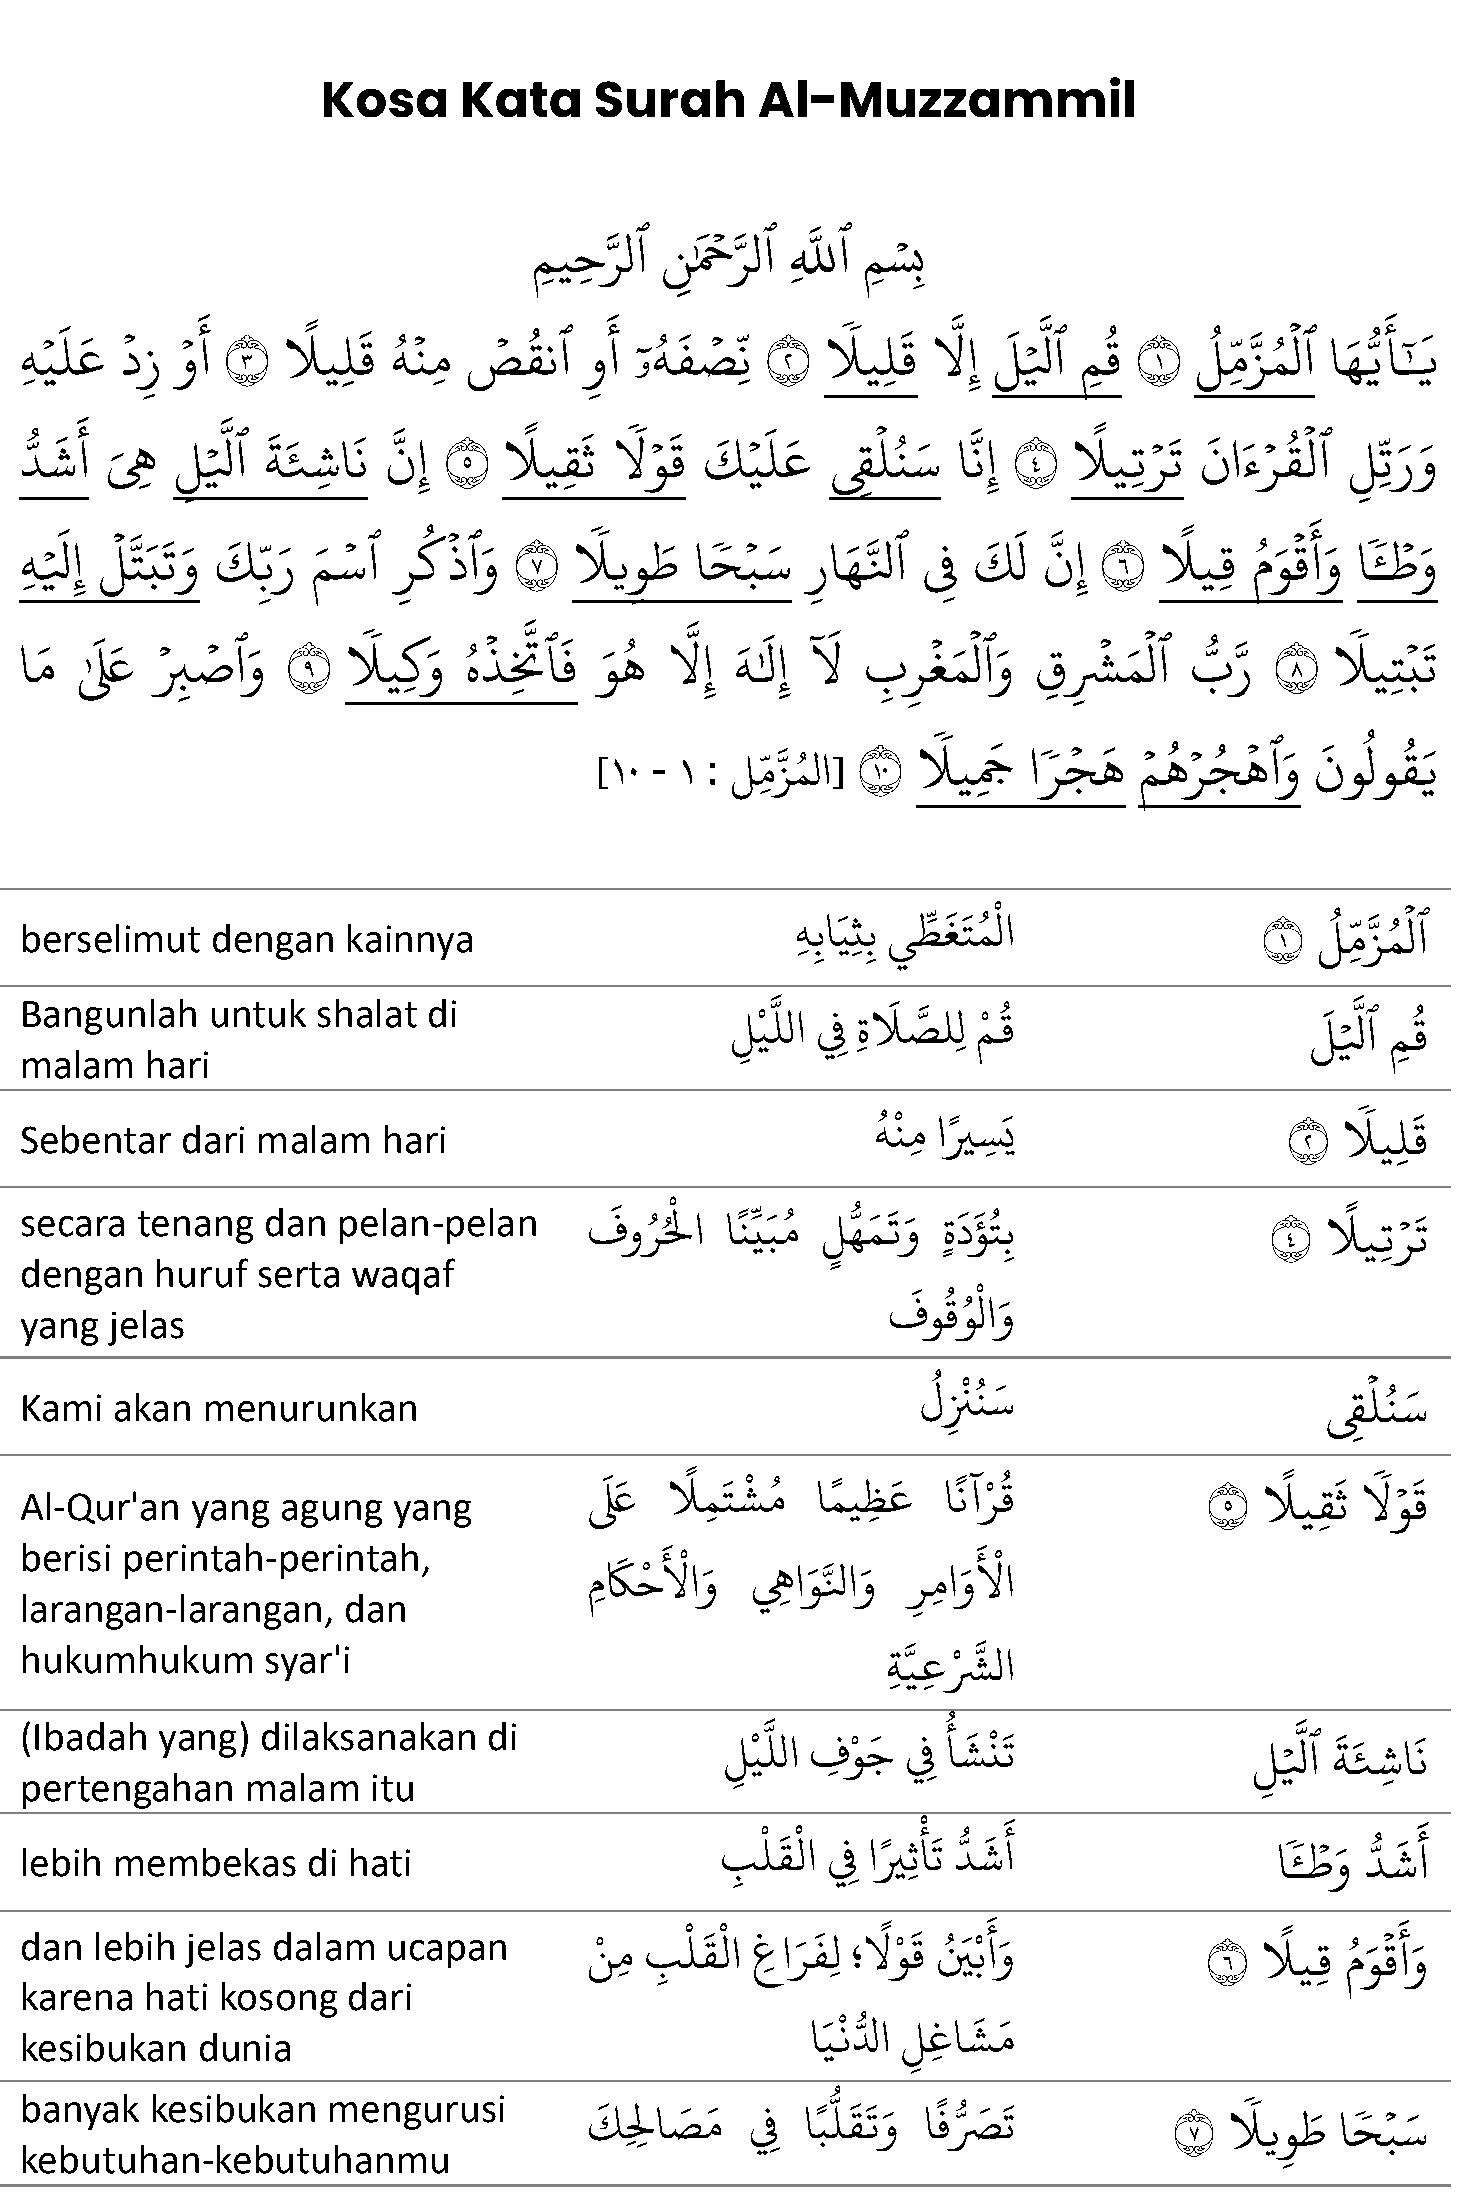 Kosa Kata Surah Al-Muzzammil
بِسۡمِ ٱللَّهِ ٱلرَّحۡمَٰنِ ٱلرَّحِيمِ
يَٰٓأَيُّهَا ٱلۡمُزَّمِّلُ ١ قُمِ ٱلَّيۡلَ إِلَّا قَلِيلٗا ٢ نِّصۡفَهُۥٓ أَوِ ٱنقُصۡ مِنۡهُ قَلِيلًا ٣ أَوۡ زِدۡ عَلَيۡهِ
وَرَتِّلِ ٱلۡقُرۡءَانَ تَرۡتِيلًا ٤ إِنَّا سَنُلۡقِي عَلَيۡكَ قَوۡلٗا ثَقِيلًا ٥ إِنَّ نَاشِئَةَ ٱلَّيۡلِ هِيَ أَشَدُّ
وَطۡـٔٗا وَأَقۡوَمُ قِيلًا ٦ إِنَّ لَكَ فِي ٱلنَّهَارِ سَبۡحٗا طَوِيلٗا ٧ وَٱذۡكُرِ ٱسۡمَ رَبِّكَ وَتَبَتَّلۡ إِلَيۡهِ
تَبۡتِيلٗا ٨ رَّبُّ ٱلۡمَشۡرِقِ وَٱلۡمَغۡرِبِ لَآ إِلَٰهَ إِلَّا هُوَ فَٱتَّخِذۡهُ وَكِيلٗا ٩ وَٱصۡبِرۡ عَلَىٰ مَا
يَقُولُونَ وَٱهۡجُرۡهُمۡ هَجۡرٗا جَمِيلٗا ١٠ [المُزَّمِّل : ١ - ١٠]
ٱلۡمُزَّمِّلُ ١ الْمُتَغَطِّي بِثِيَابِهِ berselimut dengan kainnya
قُمِ ٱلَّيۡلَ قُمْ لِلصَّلَاةِ فِي اللَّيْلِ Bangunlah untuk shalat di
malam hari
قَلِيلٗا ٢ يَسِيرًا مِنْهُ Sebentar dari malam hari
تَرۡتِيلًا ٤ بِتُؤَدَةٍ وَتَمَهُّلٍ مُبَيِّنًا الْحُرُوفَ secara tenang dan pelan-pelan
وَالْوُقُوفَ dengan huruf serta waqaf
yang jelas
سَنُلۡقِي سَنُنْزِلُ Kami akan menurunkan
قَوۡلٗا ثَقِيلًا ٥ قُرْآنًا عَظِيمًا مُشْتَمِلًا عَلَى Al-Qur'an yang agung yang
الْأَوَامِرِ وَالنَّوَاهِي وَالْأَحْكَامِ berisi perintah-perintah,
الشَّرْعِيَّةِ larangan-larangan, dan
hukumhukum syar'i
نَاشِئَةَ ٱلَّيۡلِ تَنْشَأُ فِي جَوْفِ اللَّيْلِ (Ibadah yang) dilaksanakan di
pertengahan malam itu
أَشَدُّ وَطۡـٔٗا أَشَدُّ تَأْثِيرًا فِي الْقَلْبِ lebih membekas di hati
وَأَقۡوَمُ قِيلًا ٦ وَأَبْيَنُ قَوْلًا؛ لِفَرَاغِ الْقَلْبِ مِنْ dan lebih jelas dalam ucapan
مَشَاغِلِ الدُّنْيَا karena hati kosong dari
kesibukan dunia
سَبۡحٗا طَوِيلٗا ٧ تَصَرُّفًا وَتَقَلُّبًا فِي مَصَالِحِكَ banyak kesibukan mengurusi
kebutuhan-kebutuhanmu